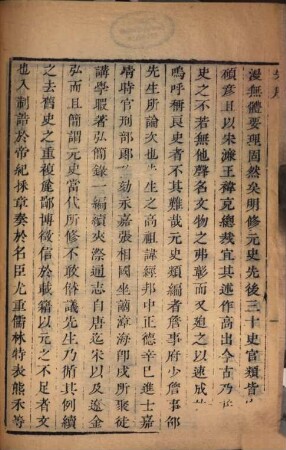 漫無體要理固然矣明修元史先後三十史官類皆
碩彥且以宋濂王褘克總裁宜其述作高出今古乃
史之不若無他聲名文物之弗彰而又迫之以速成
嗚呼稱良史者不其難哉元史類編者詹事府少詹事邵
先生所論次也先生之高祖諱經邦中正德辛巳進士嘉
靖時官刑部郎 劾永嘉張相國坐謫漳海卽戍所聚徒
講學暇著弘簡錄一編續夾漈通志自唐迄宋以及遼金
弘而且簡謂元史當代所修不敢僭議先生乃循其例續
之去舊史之重複旌鄙博徵信於載籍以元之不足者文
也入制誥於帝紀採章奏於名臣尤重儒林特表熊禾等